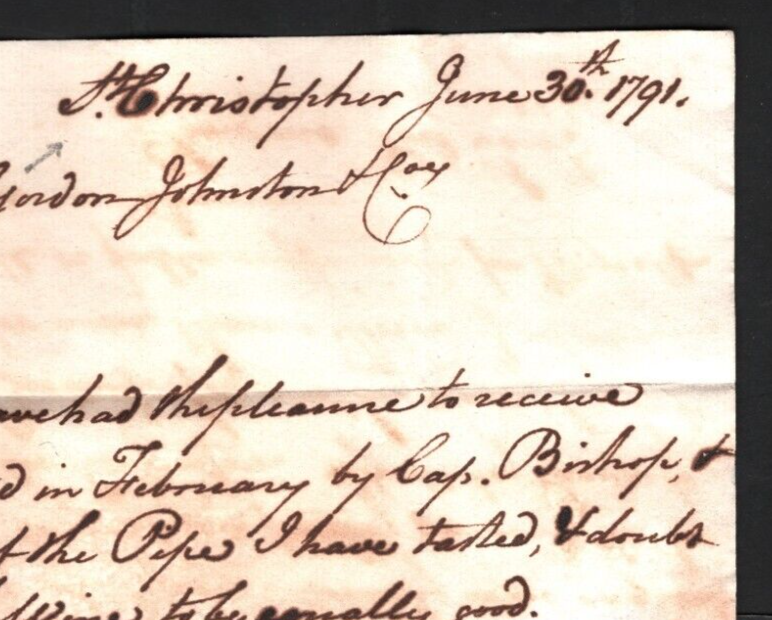 St. Christopher June 30.th 1791.
Gordon Johnston & Coy
have had the pleasure to receive
d in February by Cap. Bishop, &
of the Pipe I have tasted, & doubt
Wine to be equally good.